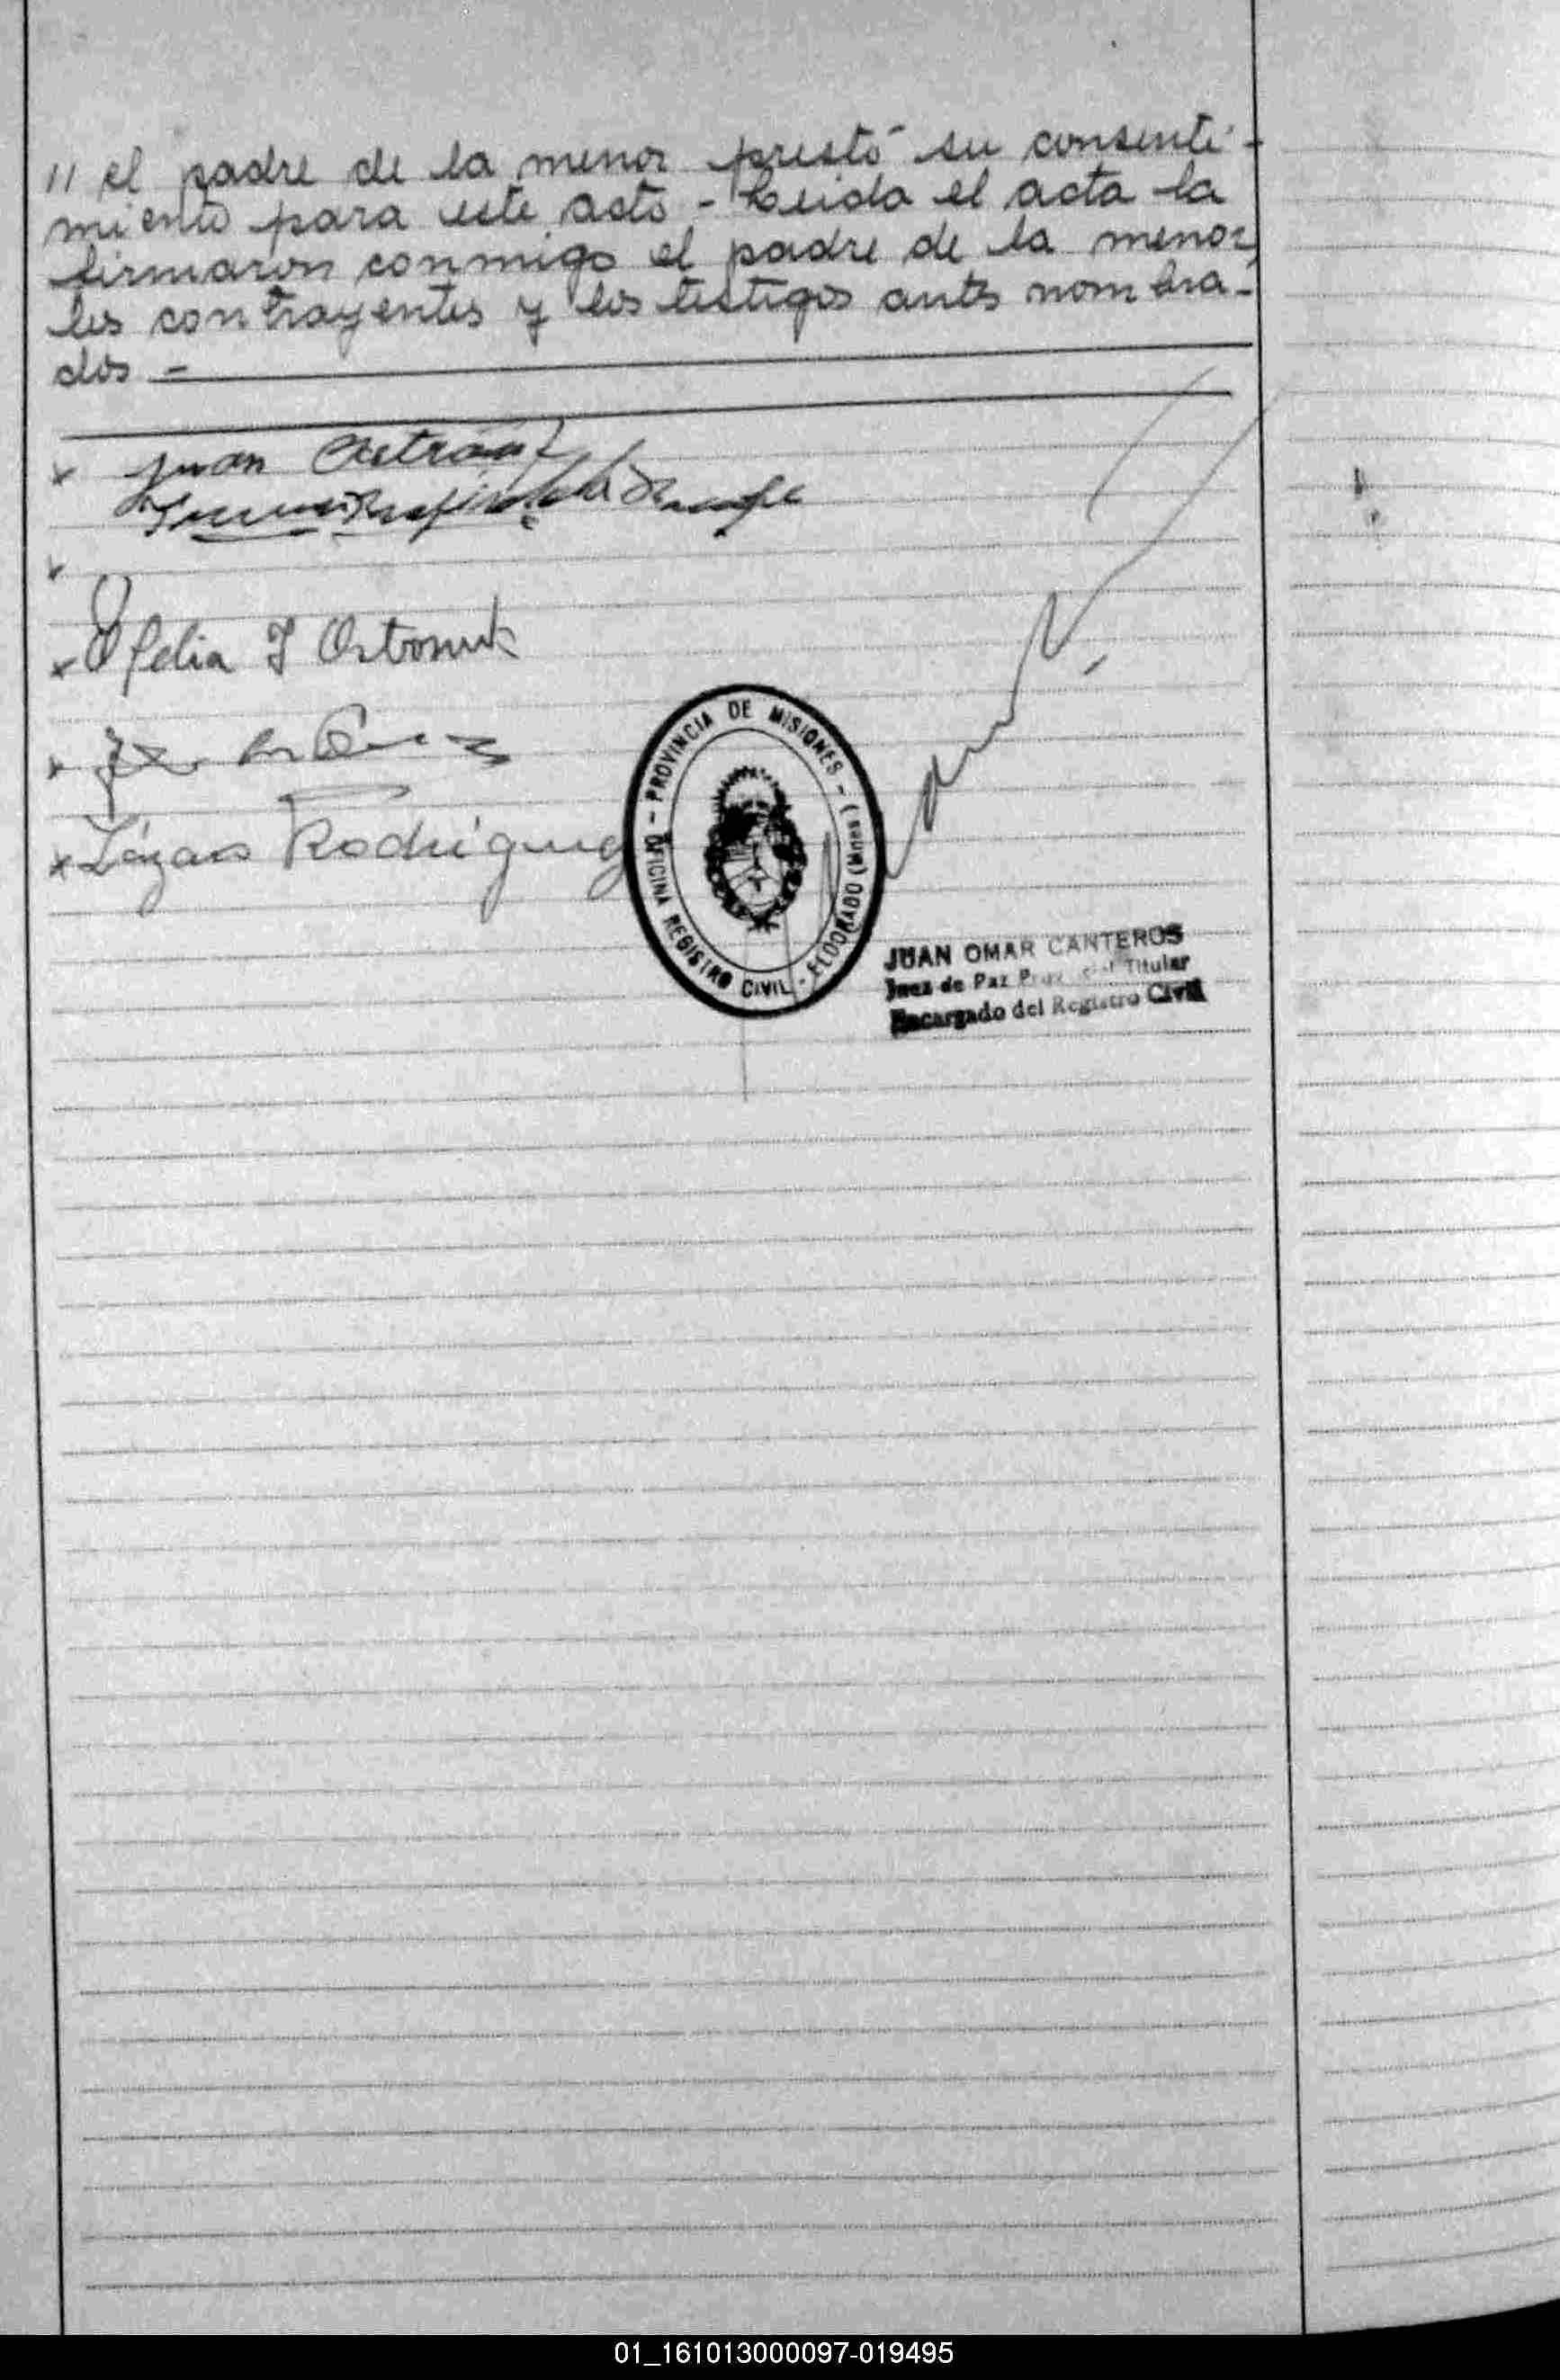 11 el padre de la menor prestó su consenti-
miento para este acto - Leida el acta la
firmaron conmigo el padre de la menor,
los contrayentes y los testigos antes nombra-
dos -
x Juan
x Ofelia I Ostonuk
x
x Lázaro Rodriguez
OFICINA REGISTRO CIVIL - ELDORADO (Mnes.) - PROVINCIA DE MISIONES -
JUAN OMAR CANTEROS
Juez de Paz Provincial Titular
Encargado del Registro Civil
01_161013000097-019495